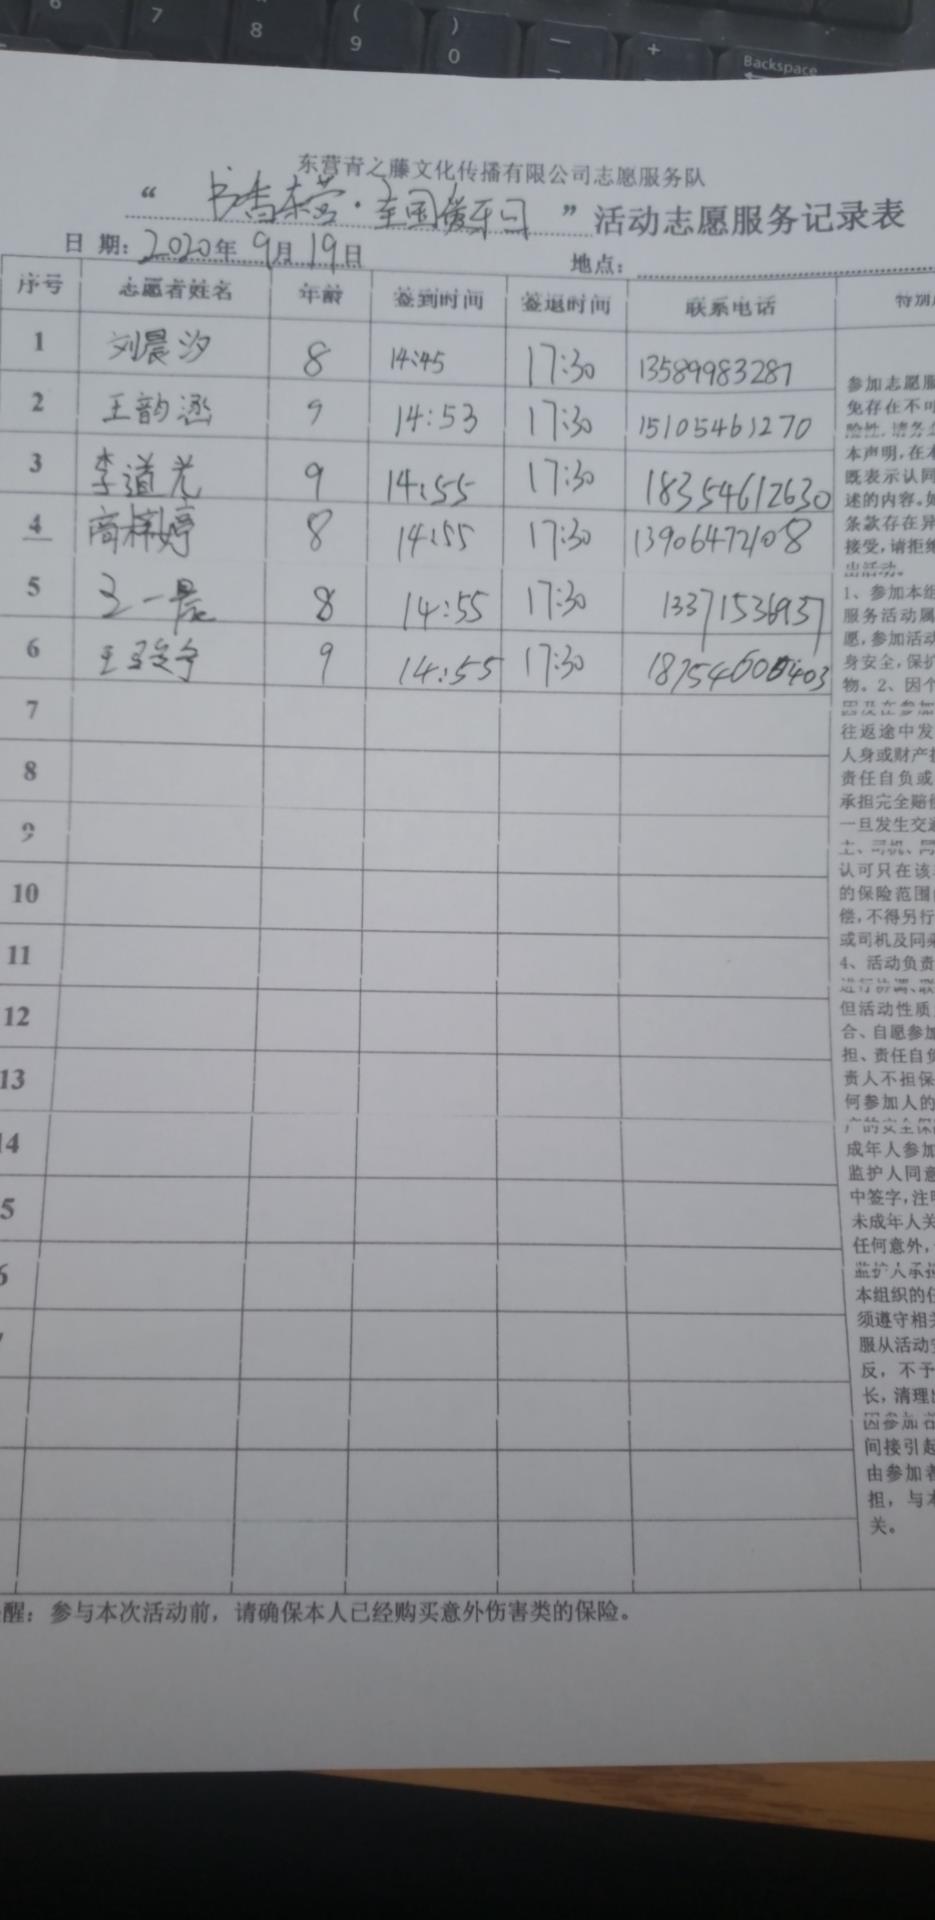 6 7 ( 8 9 ) 0 — + Backspace
东营青之藤文化传播有限公司志愿服务队
“书香东营·全国爱牙日”活动志愿服务记录表
日 期：2020年9月19日 地点：
序号 志愿者姓名 年龄 签到时间 签退时间 联系电话 特别
1 刘晨汐 8 14:45 17:30 13589983287
2 王韵涵 9 14:53 17:30 15105461270
3 李道光 9 14:55 17:30 18354612630
4 商梓婷 8 14:55 17:30 13906472108
5 王一晨 8 14:55 17:30 13371536957
6 王 9 14:55 17:30
7
8
9
10
11
12
13
14
5
6
参加志愿服
免存在不可
险性，请务
本声明，在本
既表示认同
述的内容。如
条款存在异
接受，请拒绝
出活动。
1、参加本组
服务活动属
愿，参加活动
身安全，保护
物。2、因个
因及在参加
往返途中发
人身或财产损
责任自负或
承担完全赔偿
一旦发生交通
主、司机、同
认可只在该
的保险范围
偿，不得另行
或司机及同乘
4、活动负责
进行协调、联
但活动性质
合、自愿参加
担、责任自负
责人不担保
何参加人的
产的安全保
成年人参加
监护人同意
中签字，注明
未成年人关
任何意外，
监护人承担
本组织的任
须遵守相关
服从活动安
反，不予
长，清理出
因参加者
间接引起
由参加者
担，与本
关。
醒：参与本次活动前，请确保本人已经购买意外伤害类的保险。